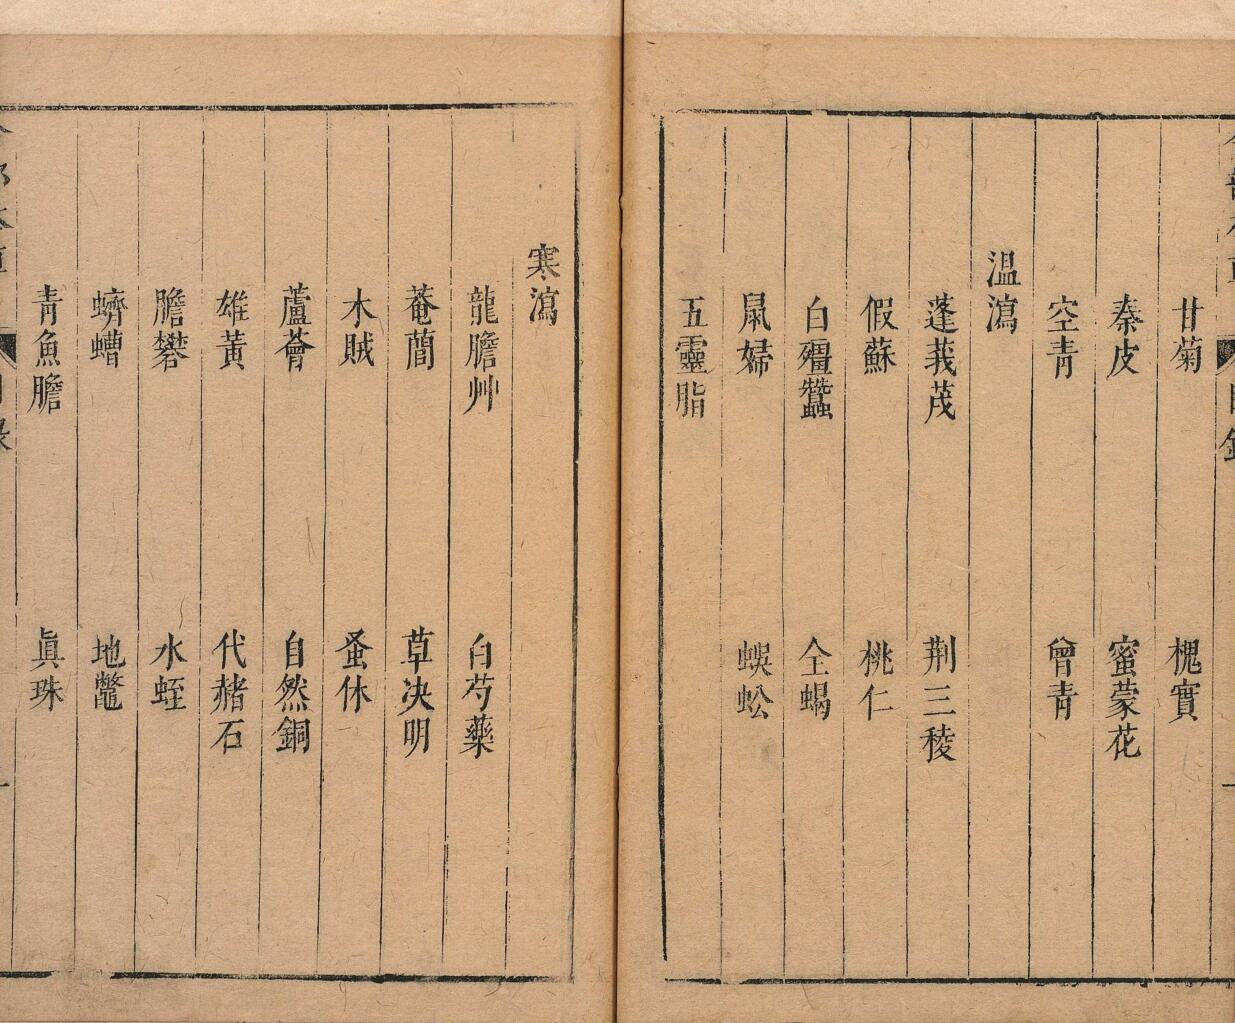 甘菊 槐實
秦皮 蜜蒙花
空青 曾青
温瀉
蓬莪茂 荆三稜
假蘇 桃仁
白殭蠶 全蝎
鼠婦 蜈蚣
五靈脂
寒瀉
龍膽艸 白芍藥
菴䕡 草決明
木賊 蚤休
蘆薈 自然銅
雄黃 代赭石
膽礬 水蛭
蠐螬 地鼈
青魚膽 眞珠